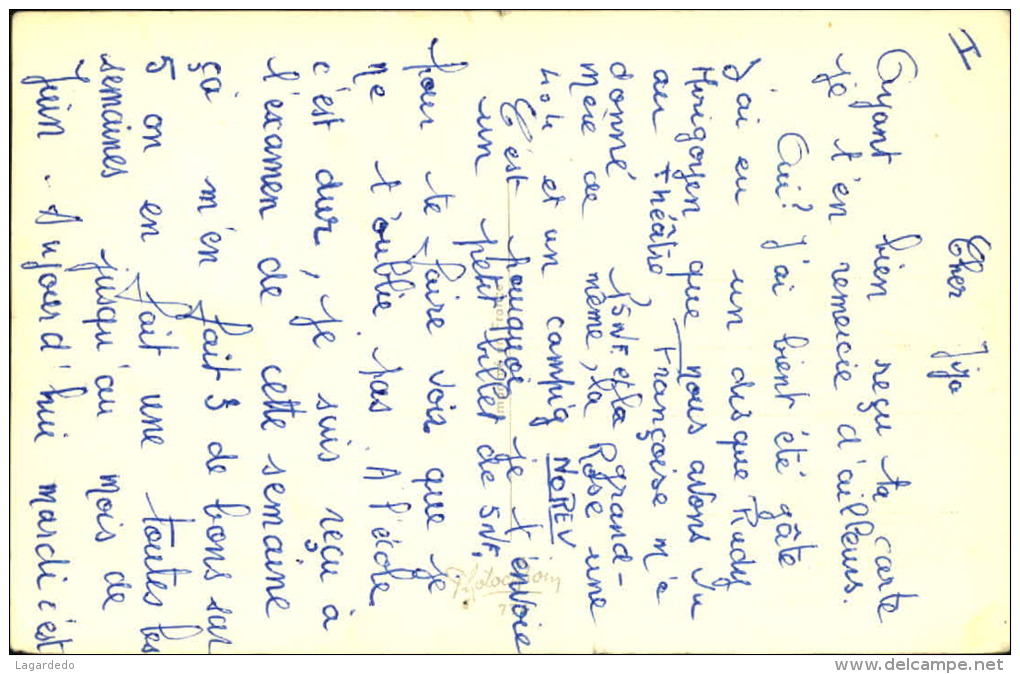 I
Cher Jojo
Ayant bien reçu ta carte
je t'en remercie d'ailleurs.
Oui? j'ai bient été gâté
J'ai eu un disque Rudy
Hirigoyen que nous avons vu
au théâtre Françoise m'a
donné 5 NF. et la grand-
mère de même, la Rose une
404 et un campig NOREV
C'est pourquoi je t'envoie
un petit billet de 5 NF.
pour te faire voir que je
ne t'oublie pas. A l'école
c'est dur, je suis reçu à
l'examen de cette semaine
ça m'en fait 3 de bons sur
5 on en fait une toutes les
semaines jusqu'au mois de
juin. Aujourd'hui mardi c'est
Photochrom
Lagardedo
www.delcampe.net